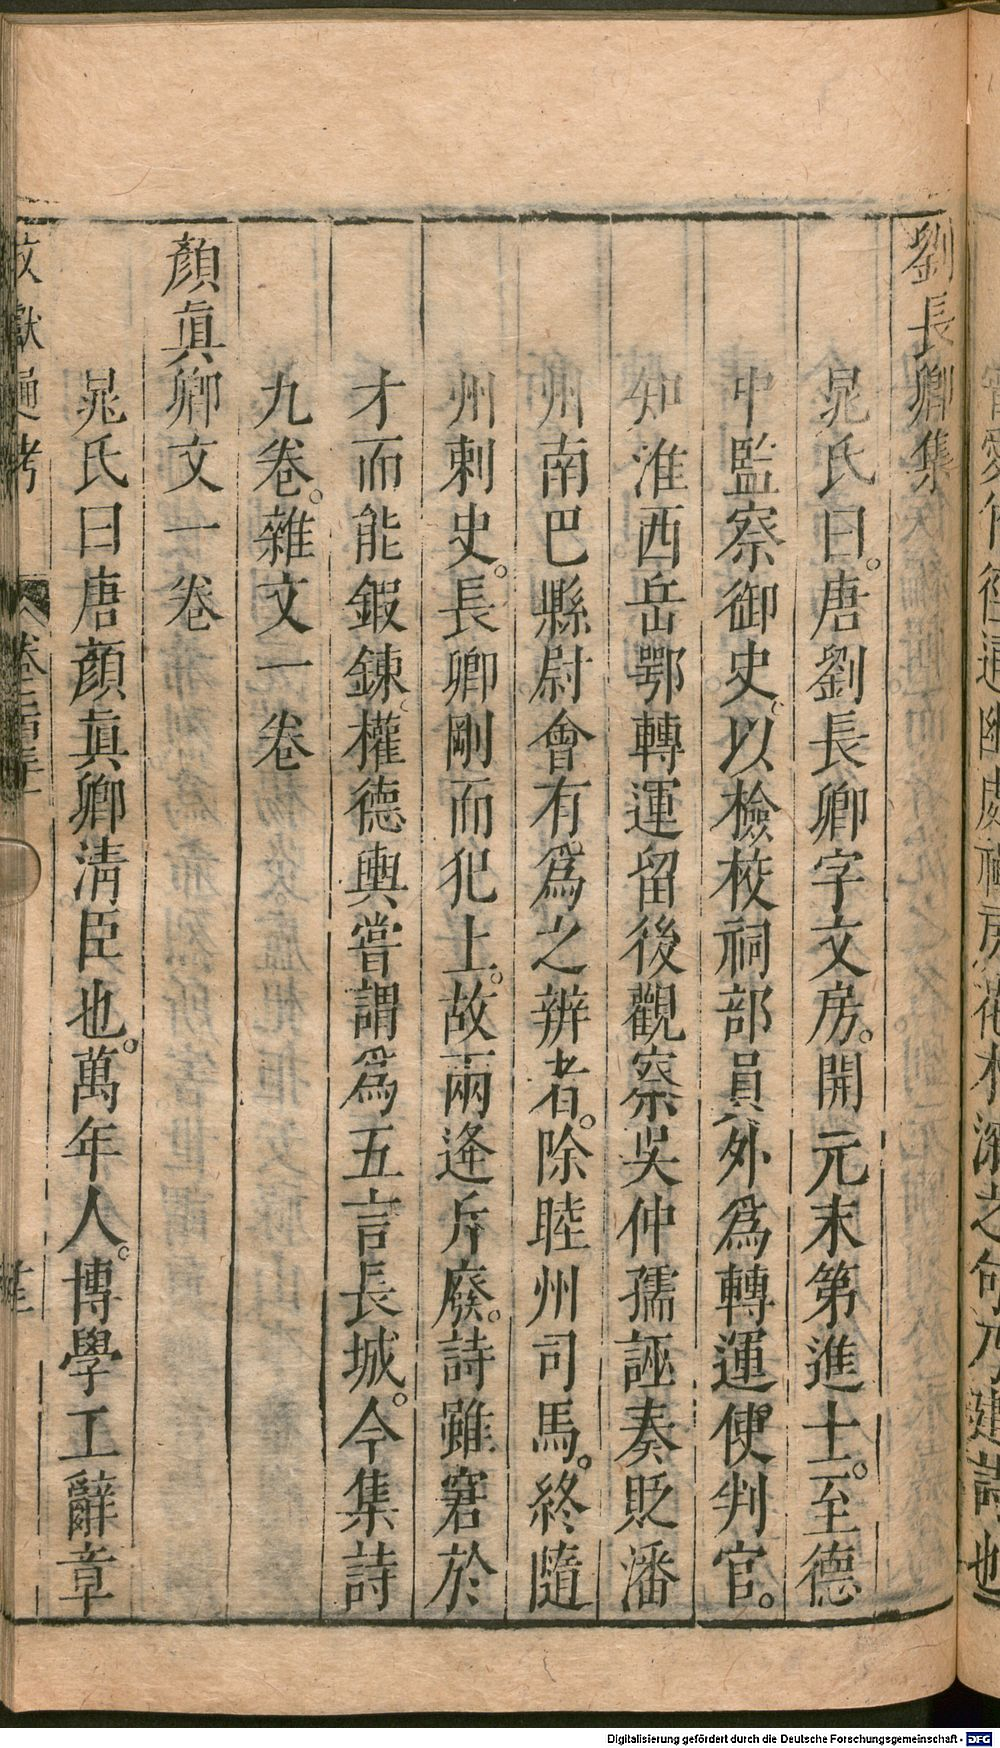 劉長卿集
晁氏曰。唐劉長卿字文房。開元末第進士。至德
中監察御史。以檢校祠部員外爲轉運使判官。
知淮西岳鄂轉運留後觀察吳仲孺誣奏貶潘
州南巴縣尉會有爲之辨者。除睦州司馬。終隨
州刺史。長卿剛而犯上。故兩逢斥廢。詩雖窘於
才而能鍛鍊。權德輿嘗謂爲五言長城。今集詩
九卷。雜文一卷
顏眞卿文一卷
晁氏曰唐顏眞卿淸臣也。萬年人。博學工辭章
文獻通考 卷
Digitalisierung gefördert durch die Deutsche Forschungsgemeinschaft - DFG